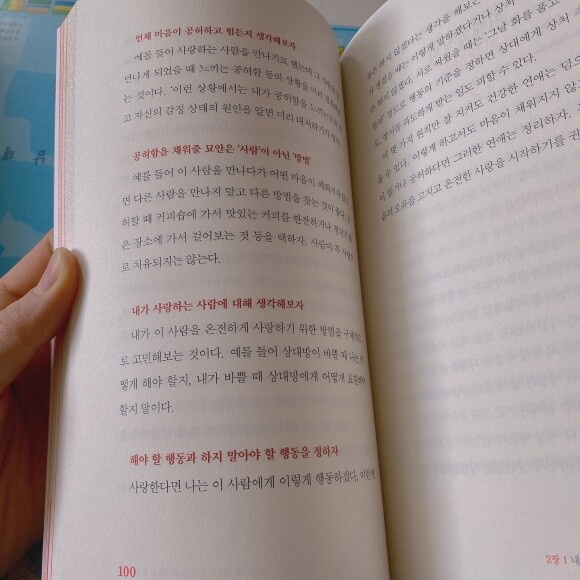 언제 마음이 공허하고 힘든지 생각해보자
예를 들어 사랑하는 사람을 만나기로 했는데 그 사람을
만나게 되었을 때 느끼는 공허함 등의 상황을
는 것이다. '이런 상황에서는 내가 공허함을
고 자신의 감정 상태의 원인을 알면 미리 대처하기가
공허함을 채워줄 묘안은 '사람'이 아닌 '방법'
예를 들어 이 사람을 만나다가 어떤 마음이
면 다른 사람을 만나지 말고 다른 방법을 찾는 것이
허할 때 커피숍에 가서 맛있는 커피를 한잔하거나
은 장소에 가서 걸어보는 것 등을 택하자. 사람이 꼭
로 치유되지는 않는다.
내가 사랑하는 사람에 대해 생각해보자
내가 이 사람을 온전하게 사랑하기 위한 방법을
로 고민해보는 것이다. 예를 들어 상대방이 바쁠 때 나는
떻게 해야 할지, 내가 바쁠 때 상대방에게 어떻게
할지 말이다.
해야 할 행동과 하지 말아야 할 행동을 정하자
사랑한다면 나는 이 사람에게 이렇게 행동하겠다,
100
싶지 않겠다는 생각을 해보
가 생겼을 때는 이렇게 말하겠다거나 상처
하지 않겠다. 서로 싸웠을 때는 '그냥 화를 풀고
정도로 행동의 기준을 정하면 상대에게 상처
도, 상처를 과도하게 받는 일도 피할 수 있다.
이 몇 가지 원칙만 잘 지켜도 건강한 연애는 덤으
을 수 있다. 이렇게 하고서도 마음이 채워지지 않
이 들거나 공허하다면 그러한 연애는 정리하자.
음의 오류를 고치고 온전한 사랑을 시작하기를
2장 | 내